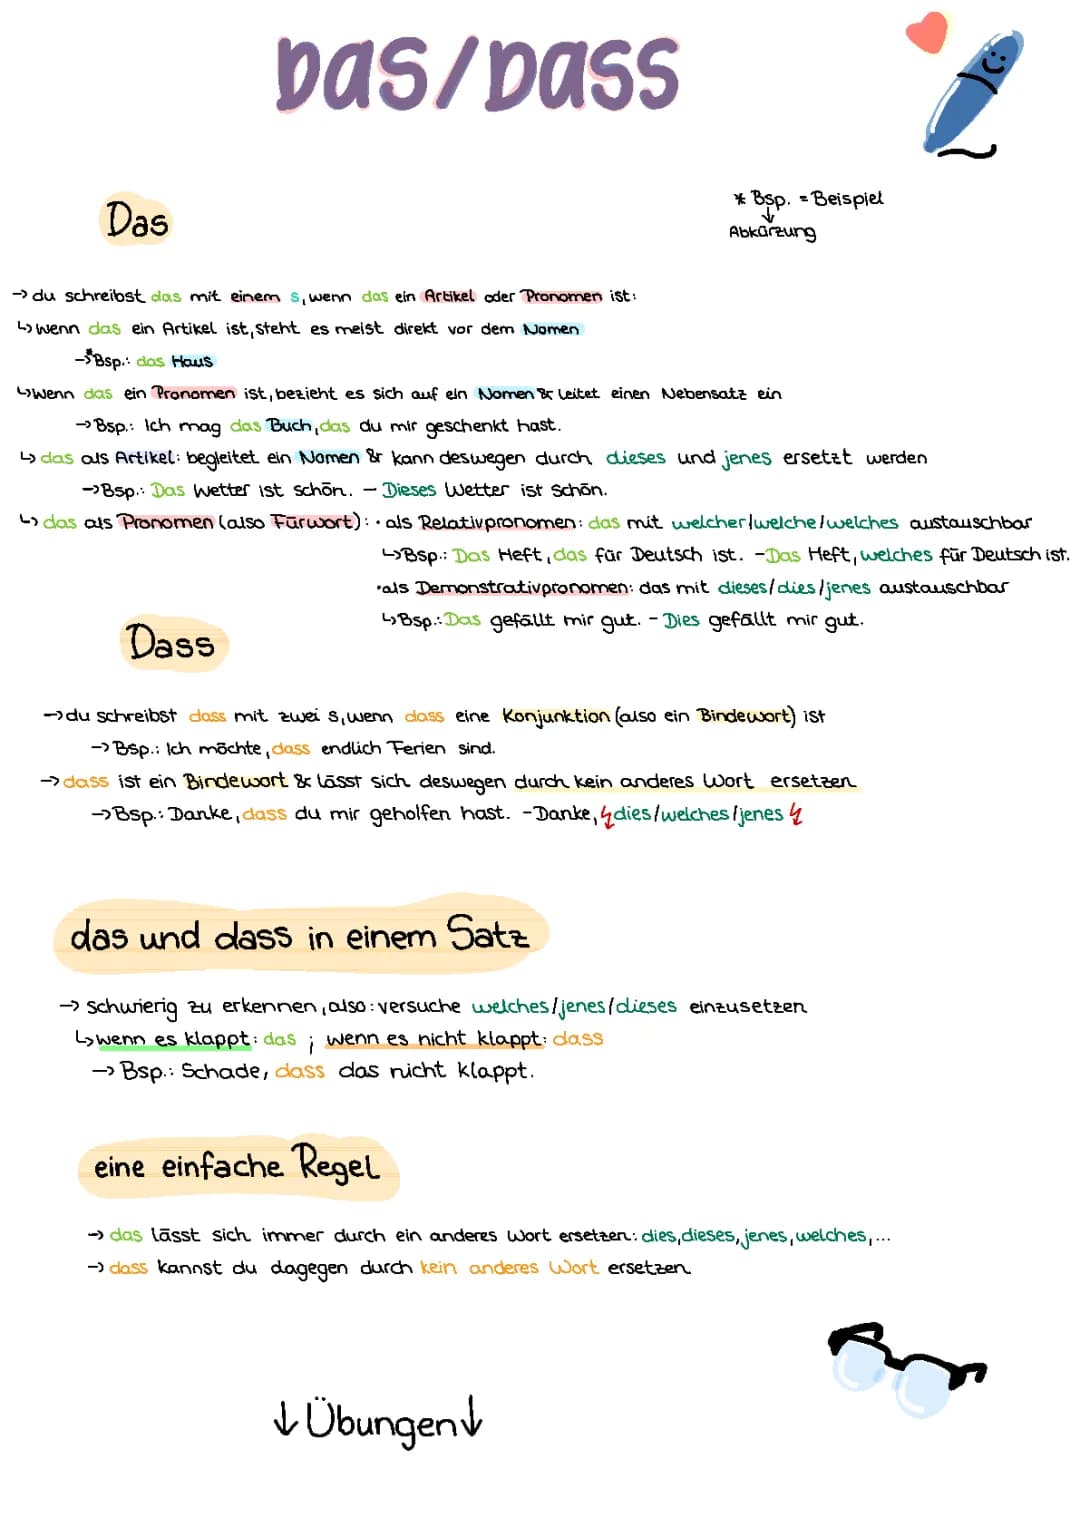 Das/Dass
* Bsp. = Beispiel
↓
Abkürzung
Das
→ du schreibst das mit einem s, wenn das ein Artikel oder Pronomen ist:
↳ wenn das ein Artikel ist, steht es meist direkt vor dem Nomen
→*Bsp.: das Haus
↳ wenn das ein Pronomen ist, bezieht es sich auf ein Nomen & leitet einen Nebensatz ein
→ Bsp.: Ich mag das Buch, das du mir geschenkt hast.
↳ das als Artikel: begleitet ein Nomen & kann deswegen durch dieses und jenes ersetzt werden
→ Bsp.: Das Wetter ist schön. – Dieses Wetter ist schön.
↳ das als Pronomen (also Fürwort): · als Relativpronomen: das mit welcher/welche/welches austauschbar
↳ Bsp.: Das Heft, das für Deutsch ist. – Das Heft, welches für Deutsch ist.
· als Demonstrativpronomen: das mit dieses/dies/jenes austauschbar
↳ Bsp.: Das gefällt mir gut. – Dies gefällt mir gut.
Dass
→ du schreibst dass mit zwei s, wenn dass eine Konjunktion (also ein Bindewort) ist
→ Bsp.: Ich möchte, dass endlich Ferien sind.
→ dass ist ein Bindewort & lässt sich deswegen durch kein anderes Wort ersetzen
→ Bsp.: Danke, dass du mir geholfen hast. – Danke, ↯dies/welches/jenes↯
das und dass in einem Satz
→ schwierig zu erkennen, also: versuche welches/jenes/dieses einzusetzen
↳ wenn es klappt: das ; wenn es nicht klappt: dass
→ Bsp.: Schade, dass das nicht klappt.
eine einfache Regel
→ das lässt sich immer durch ein anderes Wort ersetzen: dies, dieses, jenes, welches, ...
→ dass kannst du dagegen durch kein anderes Wort ersetzen
↓ Übungen ↓